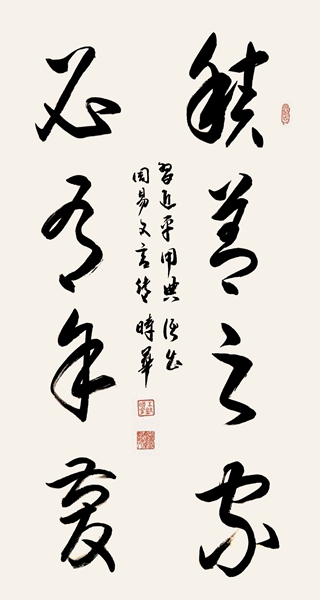 積善之家
必有余慶
習近平用典 語出
周易文言傳 時華